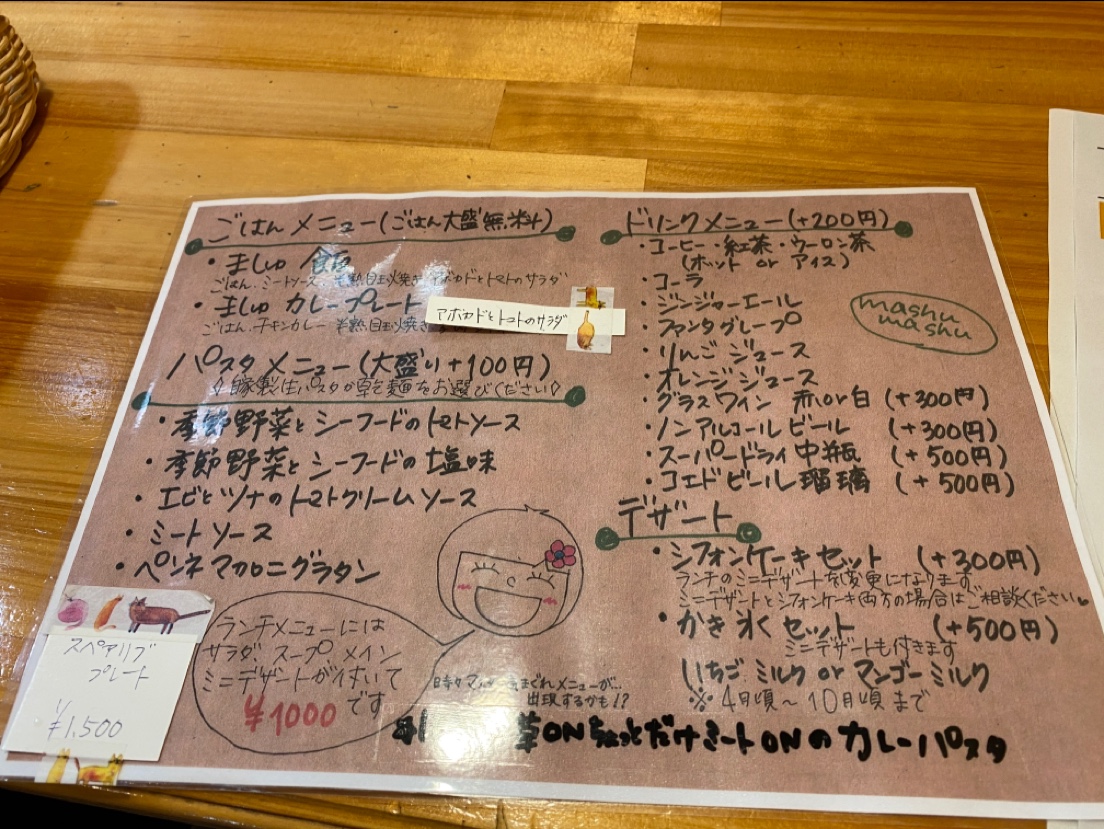 ごはんメニュー(ごはん大盛無料)
・ましゅ飯
ごはん、ミートソース、半熟目玉焼き、アボカドとトマトのサラダ
・ましゅ カレープレート
アボカドとトマトのサラダ
ごはん、チキンカレー 半熟目玉焼き
パスタメニュー(大盛り+100円)
自家製生パスタか乾麺をお選びください
・季節野菜とシーフードのトマトソース
・季節野菜とシーフードの塩味
・エビとツナのトマトクリームソース
・ミートソース
・ペンネマカロニグラタン
スペアリブ
プレート
¥1.500
ランチメニューには
サラダ スープ メイン
ミニデザートが付いて
¥1000 です
時々 まぐれメニューが…
出現するかも!?
ドリンクメニュー(+200円)
・コーヒー・紅茶・ウーロン茶
(ホット or アイス)
・コーラ
・ジンジャーエール
・ファンタグレープ
・りんごジュース
・オレンジジュース
・グラスワイン 赤or白 (+300円)
・ノンアルコールビール (+300円)
・スーパードライ中瓶 (+500円)
・コエドビール瑠璃 (+500円)
mashu
mashu
デザート
・シフォンケーキセット (+300円)
ランチのミニデザートを変更になります
ミニデザートとシフォンケーキ両方の場合はご相談ください
・かき氷セット (+500円)
ミニデザートも付きます
いちごミルク or マンゴーミルク
※4月頃〜10月頃まで
菜ONちょっとだけミートONのカレーパスタ